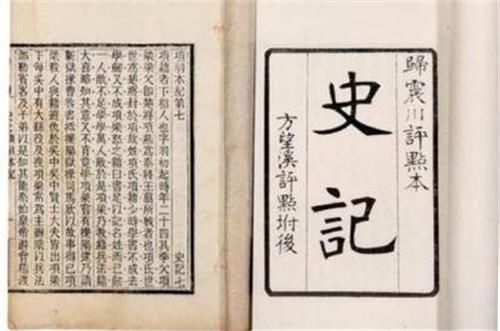 歸震川評點本
史記
方望溪評點坿後
項羽本紀第七 史記七
項籍者下相人也字羽初起時年二十四其季父項
梁梁父即楚將項燕爲秦將王翦所戮者也項氏世
世爲楚將封於項故姓項氏項籍少時學書不成去
學劒又不成項梁怒之籍曰書足以記名姓而已劒
一人敵不足學學萬人敵於是項梁乃教籍兵法籍
大喜略知其意又不肯竟學項梁嘗有櫟陽逮乃請
蘄獄掾曹咎書抵櫟陽獄掾司馬欣以故事得已項
梁殺人與籍避仇於吳中吳中賢士大夫皆出項梁
下每吳中有大繇役及喪項梁常爲主辦陰以兵法
部勒賓客及子弟以是知其能秦始皇帝游會稽渡